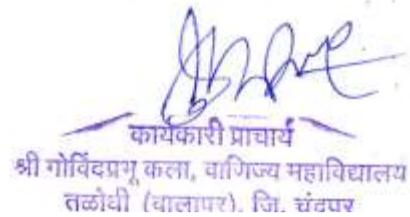 कार्यकारी प्राचार्य
श्री गोविंदप्रभू कला, वाणिज्य महाविद्यालय
तळोधी (बालापुर), जि. चंद्रपुर